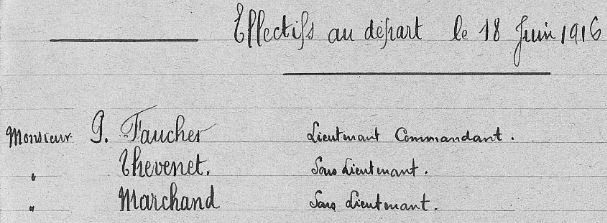 Effectifs au départ le 18 Juin 1916
Monsieur P. Faucher Lieutenant Commandant.
" Thevenet. Sous Lieutenant.
" Marchand Sous Lieutenant.